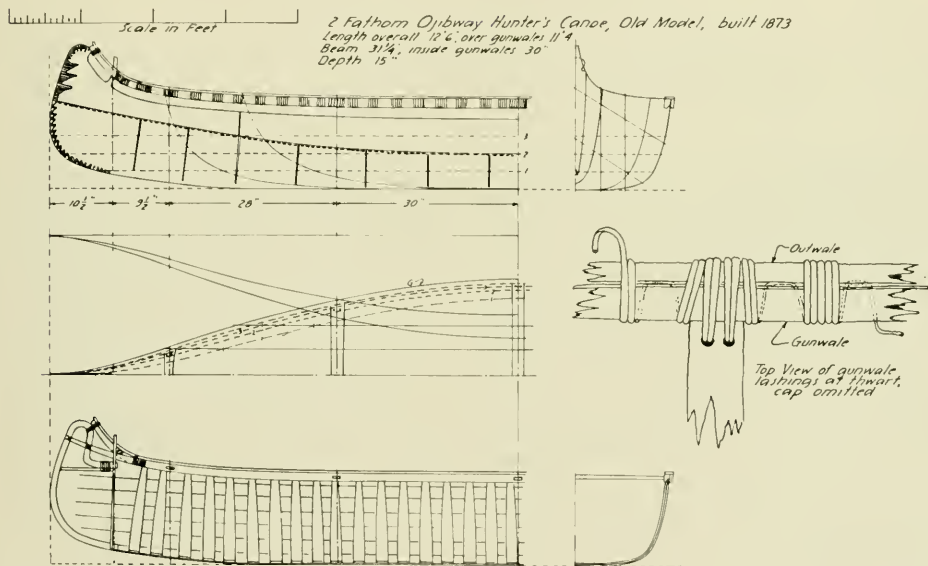 Scale in Feet
2 Fathom Ojibway Hunter's Canoe, Old Model, built 1873
Length overall 12'6", over gunwales 11'4"
Beam 31¼", inside gunwales 30"
Depth 15"
3
2
1
10½" 9½" 28" 30"
G-2
Outwale
Gunwale
Top View of gunwale
lashings at thwart,
cap omitted